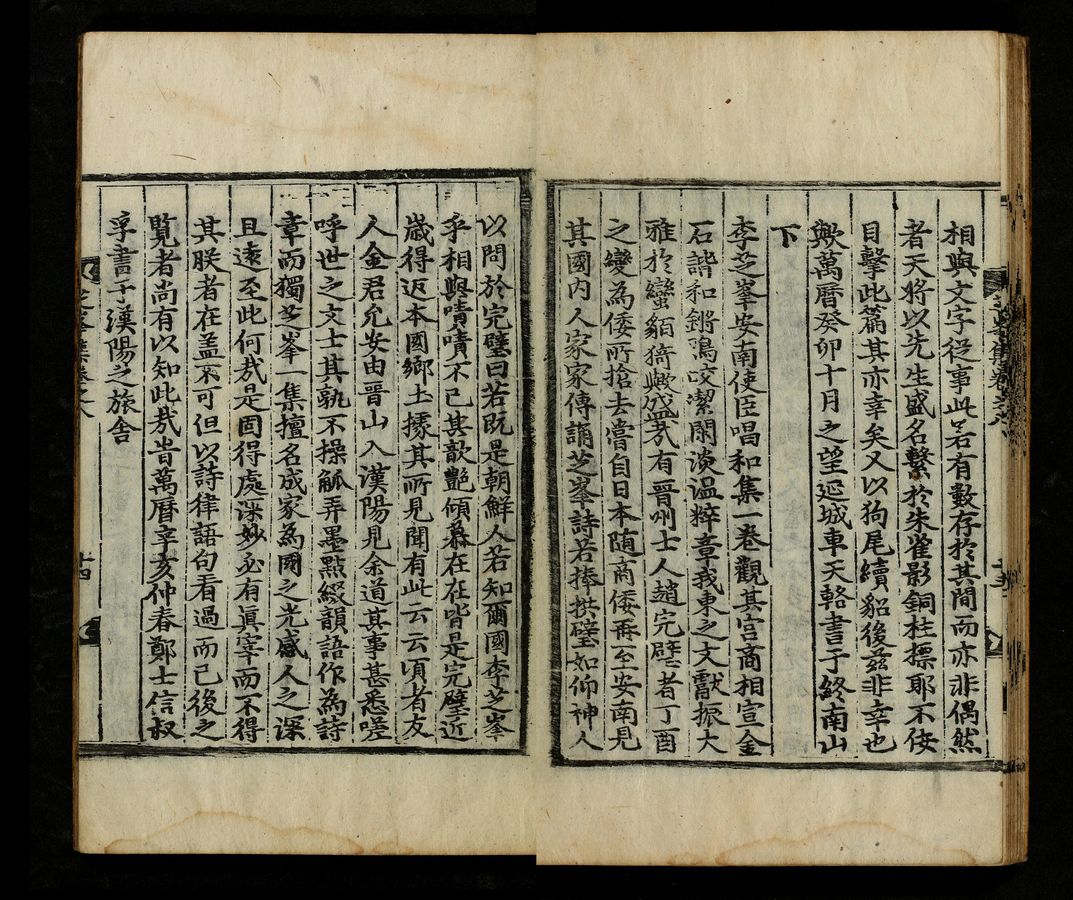 相與文字從事此若有數存於其間而亦非偶然
者天將以先生盛名繫於朱雀影銅柱標耶不佞
目擊此篇其亦幸矣又以狗尾續貂後玆非幸也
歟萬曆癸卯十月之望延城車天輅書于終南山
下
李芝峯安南使臣唱和集一卷觀其宮商相宣金
石諧和鏘鴻皎潔閑淡溫粹章我東之文獻振大
雅於蠻貊猗歟盛哉有晋州士人趙完璧者丁酉
之變爲倭所搶去嘗自日本随商倭再至安南見
其國內人家家傳誦芝峯詩若捧拱璧如仰神人
以問於完璧曰若旣是朝鮮人若知爾國李芝峯
乎相與嘖嘖不已其歆艶傾慕在在皆是完璧近
歲得返本國鄉土據其所見聞有此云云頃者友
人金君允安由晋山入漢陽見余道其事甚悉嗟
呼世之文士其孰不操觚弄墨點綴韻語作爲詩
章而獨芝峯一集擅名成家爲國之光感人之深
且遠至此何哉是固得處深妙必有眞宰而不得
其朕者在盖不可但以詩律語句看過而已後之
覽者尚有以知此哉旹萬曆辛亥仲春鄭士信叔
孚書于漢陽之旅舍